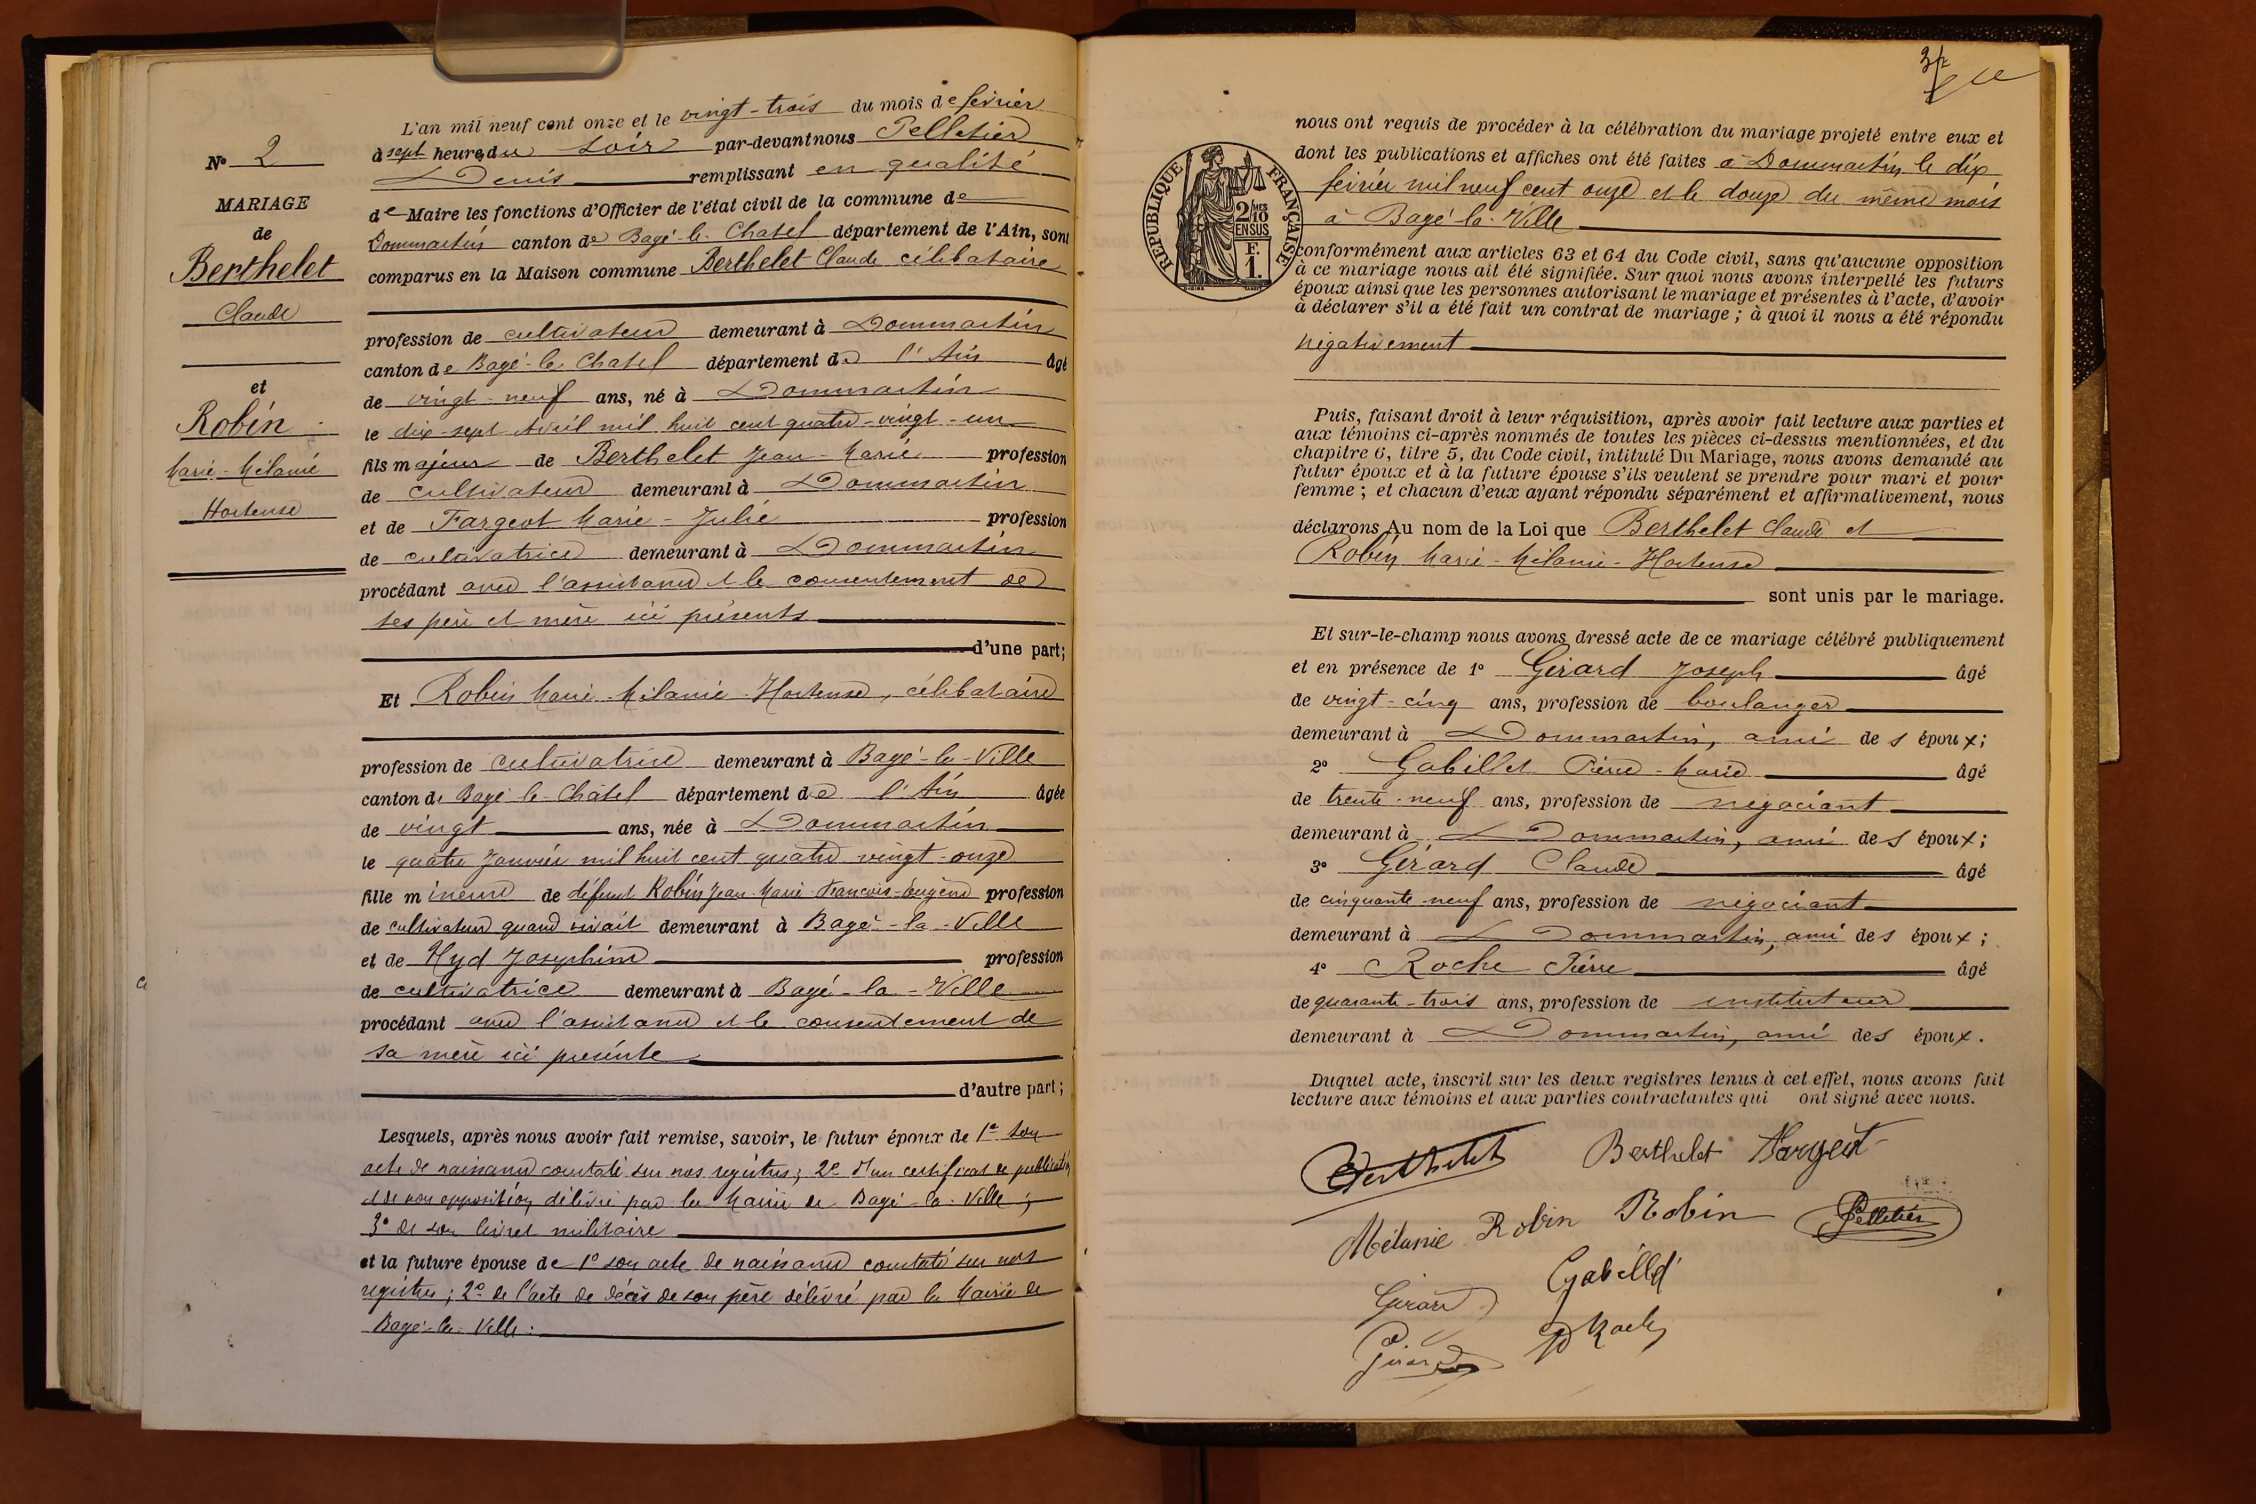 N° 2
MARIAGE
de
Berthelet
Claude
et
Robin
Marie-Mélanie
Hortense
L'an mil neuf cent onze et le vingt-trois du mois de février
à sept heures du soir par-devant nous Pelletier
Denis remplissant en qualité
de Maire les fonctions d'Officier de l'état civil de la commune de
Dommartin canton de Bagé-le-Chatel département de l'Ain, sont
comparus en la Maison commune Berthelet Claude célibataire
profession de cultivateur demeurant à Dommartin
canton de Bagé-le-Chatel département de l'Ain âgé
de vingt-neuf ans, né à Dommartin
le dix-sept Avril mil huit cent quatre-vingt-un
fils majeur de Berthelet Jean-Marie profession
de cultivateur demeurant à Dommartin
et de Fargeot Marie-Julie profession
de cultivatrice demeurant à Dommartin
procédant avec l'assistance et le consentement de
ses père et mère ici présents
d'une part;
Et Robin Marie-Mélanie-Hortense, célibataire
profession de cultivatrice demeurant à Bagé-la-Ville
canton de Bagé-le-Châtel département de l'Ain âgée
de vingt ans, née à Dommartin
le quatre Janvier mil huit cent quatre vingt-onze
fille mineure de défunt Robin Jean-Marie-François-Eugène profession
de cultivateur quand vivait demeurant à Bagé-la-Ville
et de Hyd Joséphine profession
de cultivatrice demeurant à Bagé-la-Ville
procédant avec l'assistance et le consentement de
sa mère ici présente
d'autre part;
Lesquels, après nous avoir fait remise, savoir, le futur époux de 1° son
acte de naissance constaté sur nos registres; 2° d'un certificat de publication
et de non opposition délivré par la Mairie de Bagé-la-Ville;
3° de son livret militaire
et la future épouse de 1° son acte de naissance constaté sur nos
registres; 2° de l'acte de décès de son père délivré par la Mairie de
Bagé-la-Ville.
3
RÉPUBLIQUE FRANÇAISE
2/10 MES
EN SUS
F.
1.
nous ont requis de procéder à la célébration du mariage projeté entre eux et
dont les publications et affiches ont été faites à Dommartin le dix
février mil neuf cent onze et le douze du même mois
à Bagé-la-Ville
conformément aux articles 63 et 64 du Code civil, sans qu'aucune opposition
à ce mariage nous ait été signifiée. Sur quoi nous avons interpellé les futurs
époux ainsi que les personnes autorisant le mariage et présentes à l'acte, d'avoir
à déclarer s'il a été fait un contrat de mariage; à quoi il nous a été répondu
négativement
Puis, faisant droit à leur réquisition, après avoir fait lecture aux parties et
aux témoins ci-après nommés de toutes les pièces ci-dessus mentionnées, et du
chapitre 6, titre 5, du Code civil, intitulé Du Mariage, nous avons demandé au
futur époux et à la future épouse s'ils veulent se prendre pour mari et pour
femme; et chacun d'eux ayant répondu séparément et affirmativement, nous
déclarons Au nom de la Loi que Berthelet Claude et
Robin Marie-Mélanie-Hortense
sont unis par le mariage.
Et sur-le-champ nous avons dressé acte de ce mariage célébré publiquement
et en présence de 1° Gérard Joseph âgé
de vingt-cinq ans, profession de boulanger
demeurant à Dommartin, ami des époux;
2° Gabillet Pierre-Marie âgé
de trente-neuf ans, profession de négociant
demeurant à Dommartin, ami des époux;
3° Gérard Claude âgé
de cinquante-neuf ans, profession de négociant
demeurant à Dommartin, ami des époux;
4° Roche Pierre âgé
de quarante-trois ans, profession de instituteur
demeurant à Dommartin, ami des époux.
Duquel acte, inscrit sur les deux registres tenus à cet effet, nous avons fait
lecture aux témoins et aux parties contractantes qui ont signé avec nous.
Berthelet Berthelet Fargeot
Mélanie Robin Robin Pelletier
Girard Gabillet
Girard P Roche